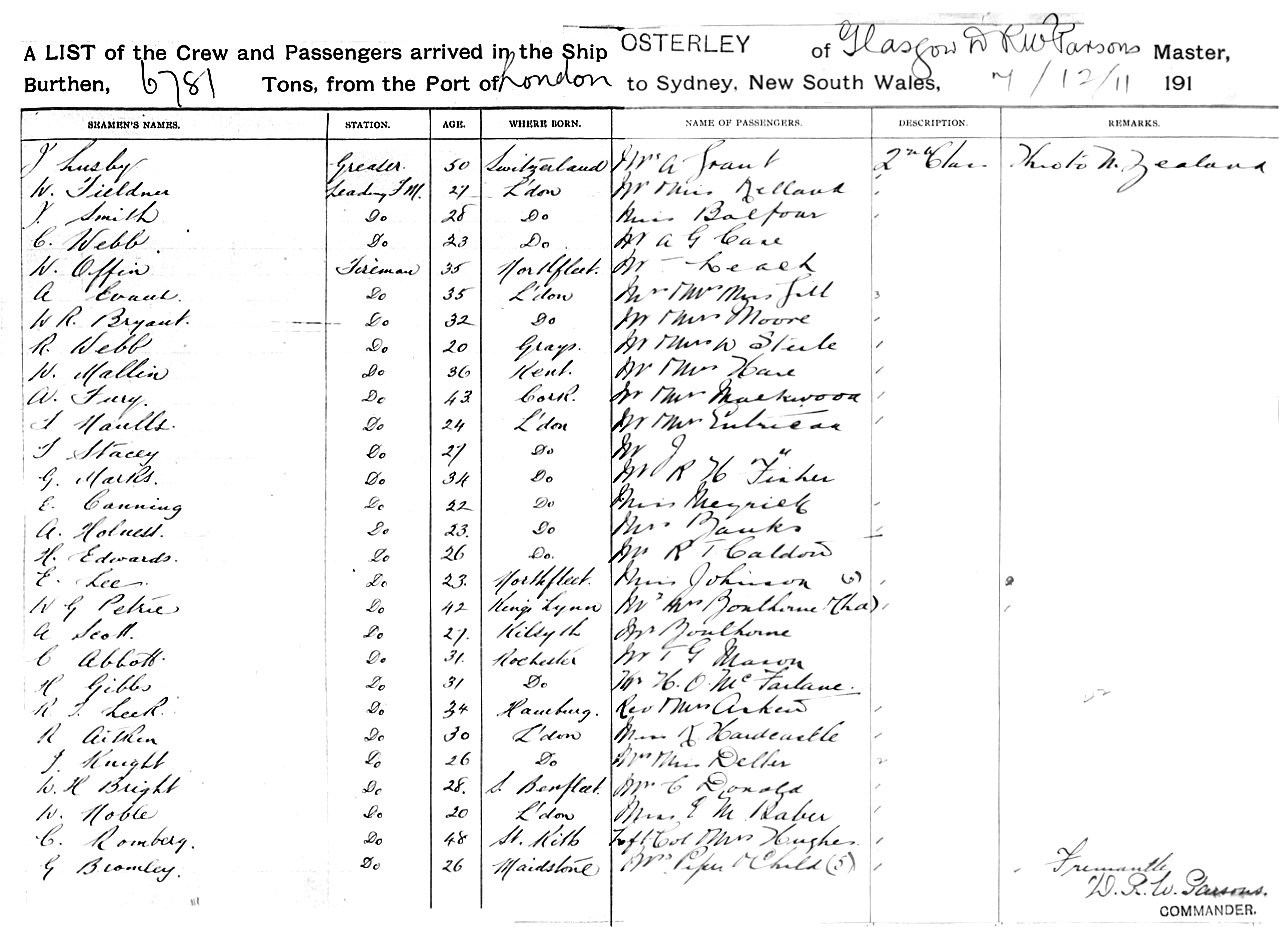 A LIST of the Crew and Passengers arrived in the Ship OSTERLEY of Glasgow D R W Parsons Master,
Burthen, 6781 Tons, from the Port of London to Sydney, New South Wales, 7/12/11 191
SEAMEN'S NAMES. STATION. AGE. WHERE BORN. NAME OF PASSENGERS. DESCRIPTION. REMARKS.
Lusby Greaser. 50 Switzerland Mrs A Grant 2nd Class N. Zealand
W. Fieldner Leading F.M. 27 L'don Mr & Miss Kelland
Smith Do 28 Do Miss Balfour
C. Webb Do 23 Do Mr A G Case
W. Offin Fireman 35 Northfleet. Mr Leach
A Evans. Do 35 L'don Mr & Mrs Miss Gill 3
W R. Bryant. Do 32 Do Mr & Mrs Moore
R. Webb Do 20 Grays. Mr & Mrs W Steele
W. Mallin Do 36 Kent. Mr & Mrs Hare
W. Fury. Do 43 Cork. Mr & Mrs Mackwood
Do 24 L'don Mr & Mrs Entrican
Stacey Do 27 Do Mr J " "
G. Marks. Do 34 Do Mr R H Fisher
E. Canning Do 22 Do Miss Meyrick
A. Holness. Do 23. Do Mrs Banks
H. Edwards. Do 26 Do. Mr R T Caldow
E. Lee. Do 23. Northfleet. Miss Johnson
W G Petrie Do 42 Kings Lynn Mr & Mrs Boulthorne
A Scott. Do 27. Kilsyth Mr Boulthorne
C Abbott. Do 31. Rochester Mr T G Mason
H Gibbs Do 31 Do Mr H. O. McFarlane.
R. Leek. Do 34 Hamburg. Rev & Mrs
R Aitken Do 30 L'don Miss K Hardcastle
J Knight Do 26 Do Mrs Miss Deller 2
W. H Bright Do 28. S. Benfleet. Mr C Donald
W. Noble Do 20 L'don Miss E M Baber
C. Romberg. Do 48 St. Kitts Col & Mrs Hughes
G Bromley. Do 26 Maidstone Mrs Piper & Child (5) Fremantle
D. R. W. Parsons.
COMMANDER.